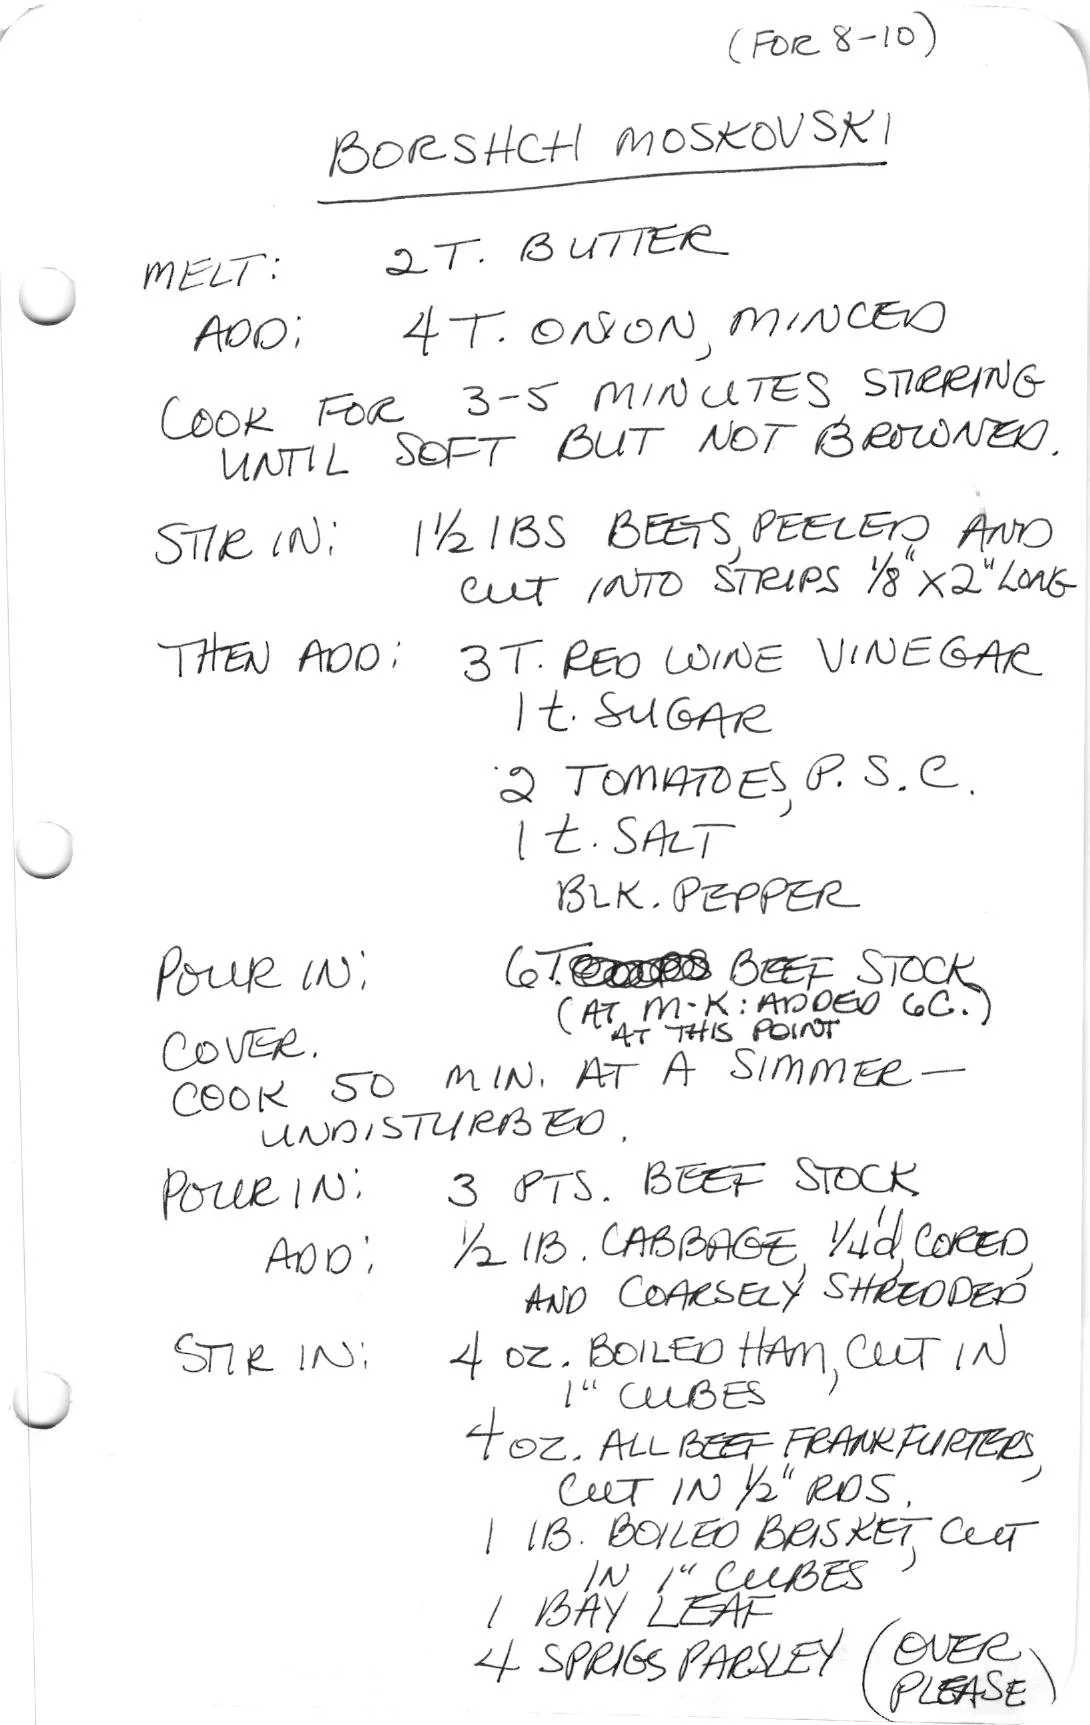 (FOR 8-10)
BORSHCH MOSKOVSKI
MELT: 2 T. BUTTER
ADD: 4 T. ONION, MINCED
COOK FOR 3-5 MINUTES, STIRRING
UNTIL SOFT BUT NOT BROWNED.
STIR IN: 1 1/2 lBS BEETS, PEELED AND
CUT INTO STRIPS 1/8" X 2" LONG
THEN ADD: 3 T. RED WINE VINEGAR
1 t. SUGAR
2 TOMATOES, P. S. C.
1 t. SALT
BLK. PEPPER
POUR IN: 6 T. BEEF STOCK
(AT M-K: ADDED 6C.)
AT THIS POINT
COVER.
COOK 50 MIN. AT A SIMMER —
UNDISTURBED.
POUR IN: 3 PTS. BEEF STOCK
ADD: 1/2 lB. CABBAGE, 1/4'd, CORED,
AND COARSELY SHREDDED
STIR IN: 4 OZ. BOILED HAM, CUT IN
1" CUBES
4 OZ. ALL BEEF FRANKFURTERS,
CUT IN 1/2" RDS.
1 lB. BOILED BRISKET, CUT
IN 1" CUBES
1 BAY LEAF
4 SPRIGS PARSLEY (OVER
PLEASE)